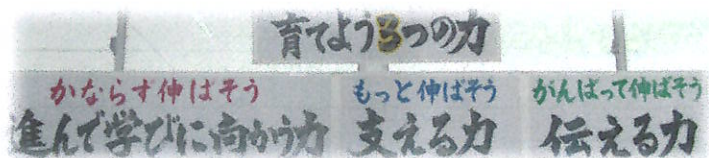 育てよう3つの力
かならず伸ばそう
進んで学びに向かう力
もっと伸ばそう
支える力
がんばって伸ばそう
伝える力